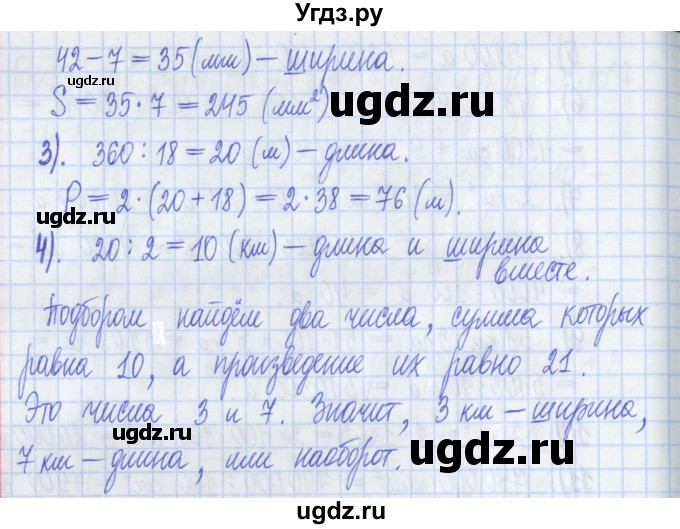 Угдз.ру
42 - 7 = 35 (мм) - ширина.
S = 35 · 7 = 245 (мм²)
ugdz.ru
3). 360 : 18 = 20 (м) - длина.
ugdz.ru
P = 2 · (20 + 18) = 2 · 38 = 76 (м).
4). 20 : 2 = 10 (км) - длина и ширина
вместе.
Подбором найдём два числа, сумма которых
равна 10, а произведение их равно 21.
Это числа 3 и 7. Значит, 3 км - ширина,
ugdz.ru
7 км - длина, или наоборот.
ugdz.ru
Угдз.ру